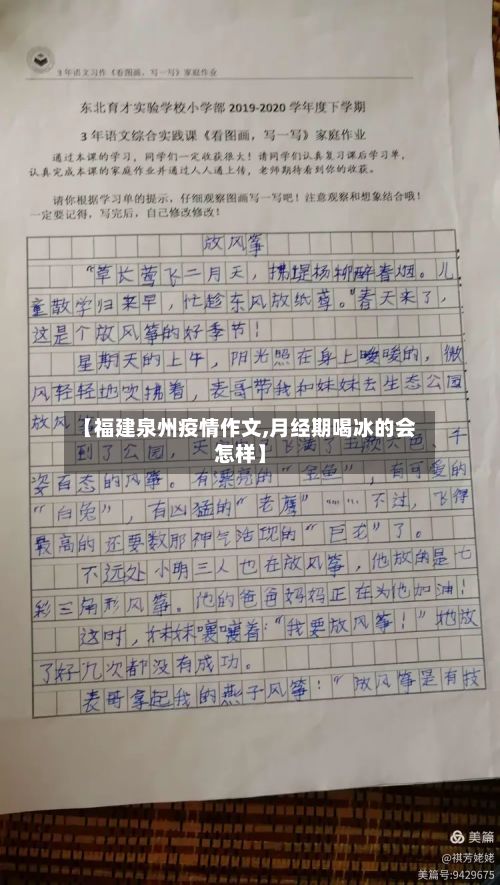 3年语文习作《看图画，写一写》家庭作业
东北育才实验学校小学部 2019-2020 学年度下学期
3 年语文综合实践课《看图画，写一写》家庭作业
通过本课的学习，同学们一定收获很大！请同学们认真复习课后学习单，
认真完成本课的家庭作业并通过人人通上传，老师期待看到你的收获。
请你根据学习单的提示，仔细观察图画写一写吧！注意观察和想象结合哦！
一定要记得，写完后，自己修改修改！
放风筝
“草长莺飞二月天，拂堤杨柳醉春烟。儿
童散学归来早，忙趁东风放纸鸢。”春天来了，
这是个放风筝的好季节！
星期天的上午，阳光照在身上暖暖的，微
风轻轻地吹拂着，表哥带我和妹妹去生态公园
放风筝
【福建泉州疫情作文,月经期喝冰的会
怎样】
到了公园，天
姿百态的风筝。有漂亮的“金鱼”，有可爱的
“白兔”，有凶猛的“老鹰”……不过，飞得
最高的还要数那神气活现的“巨龙”了。
不远处小明三人也在放风筝，他放的是七
彩三角形风筝。他的爸爸妈妈正在为他加油！
这时，妹妹嚷嚷着：“我要放风筝！”她放
了好几次都没有成功。
表哥拿起我的燕子风筝：“放风筝是有技
美篇
@祺芳姥姥
美篇号:9429675